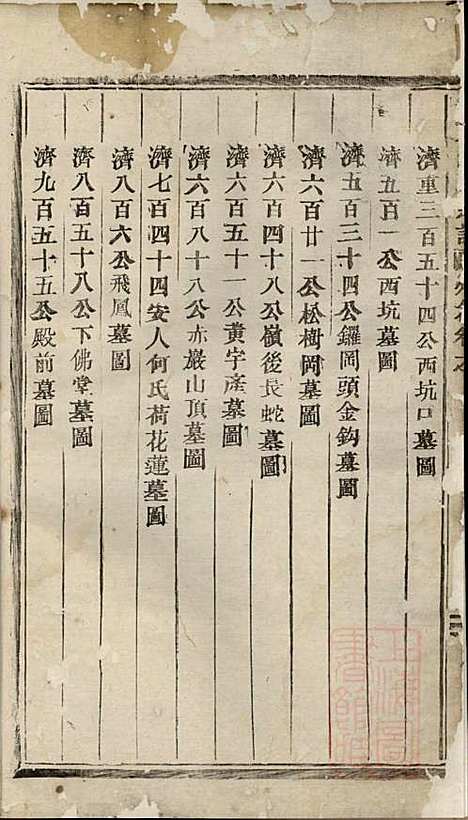 濟重三百五十四公西坑口墓圖
濟五百一公西坑墓圖
濟五百三十四公鑼岡頭金鈎墓圖
濟六百廿一公松樹岡墓圖
濟六百四十八公嶺後長蛇墓圖
濟六百五十一公黄字產墓圖
濟六百八十八公赤巖山頂墓圖
濟七百四十四安人何氏荷花蓮墓圖
濟八百六公飛鳳墓圖
濟八百五十八公下佛堂墓圖
濟九百五十五公殿前墓圖
上海圖書館藏